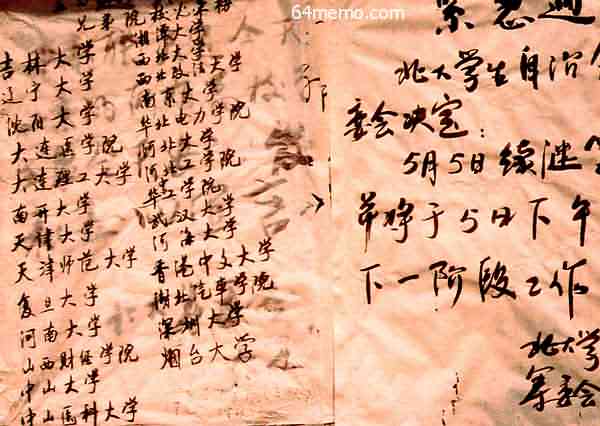 吉林大学
辽宁大学
沈阳大学
大连医学院
大连理工大学
南开大学
天津大学
天津师范大学
复旦大学
河南大学
山西财经学院
中山大学
中山医科大学
湘潭大学
西北大学
西北政法学院
河北大学
河北工学院
武汉大学
河海大学
香港中文大学
湖北汽车学院
深圳大学
烟台大学
紧急通
北大学生自治
委会决定:
5月5日续继
并将于5日下午
下一阶段工作
北大学
筹委会
64memo.com